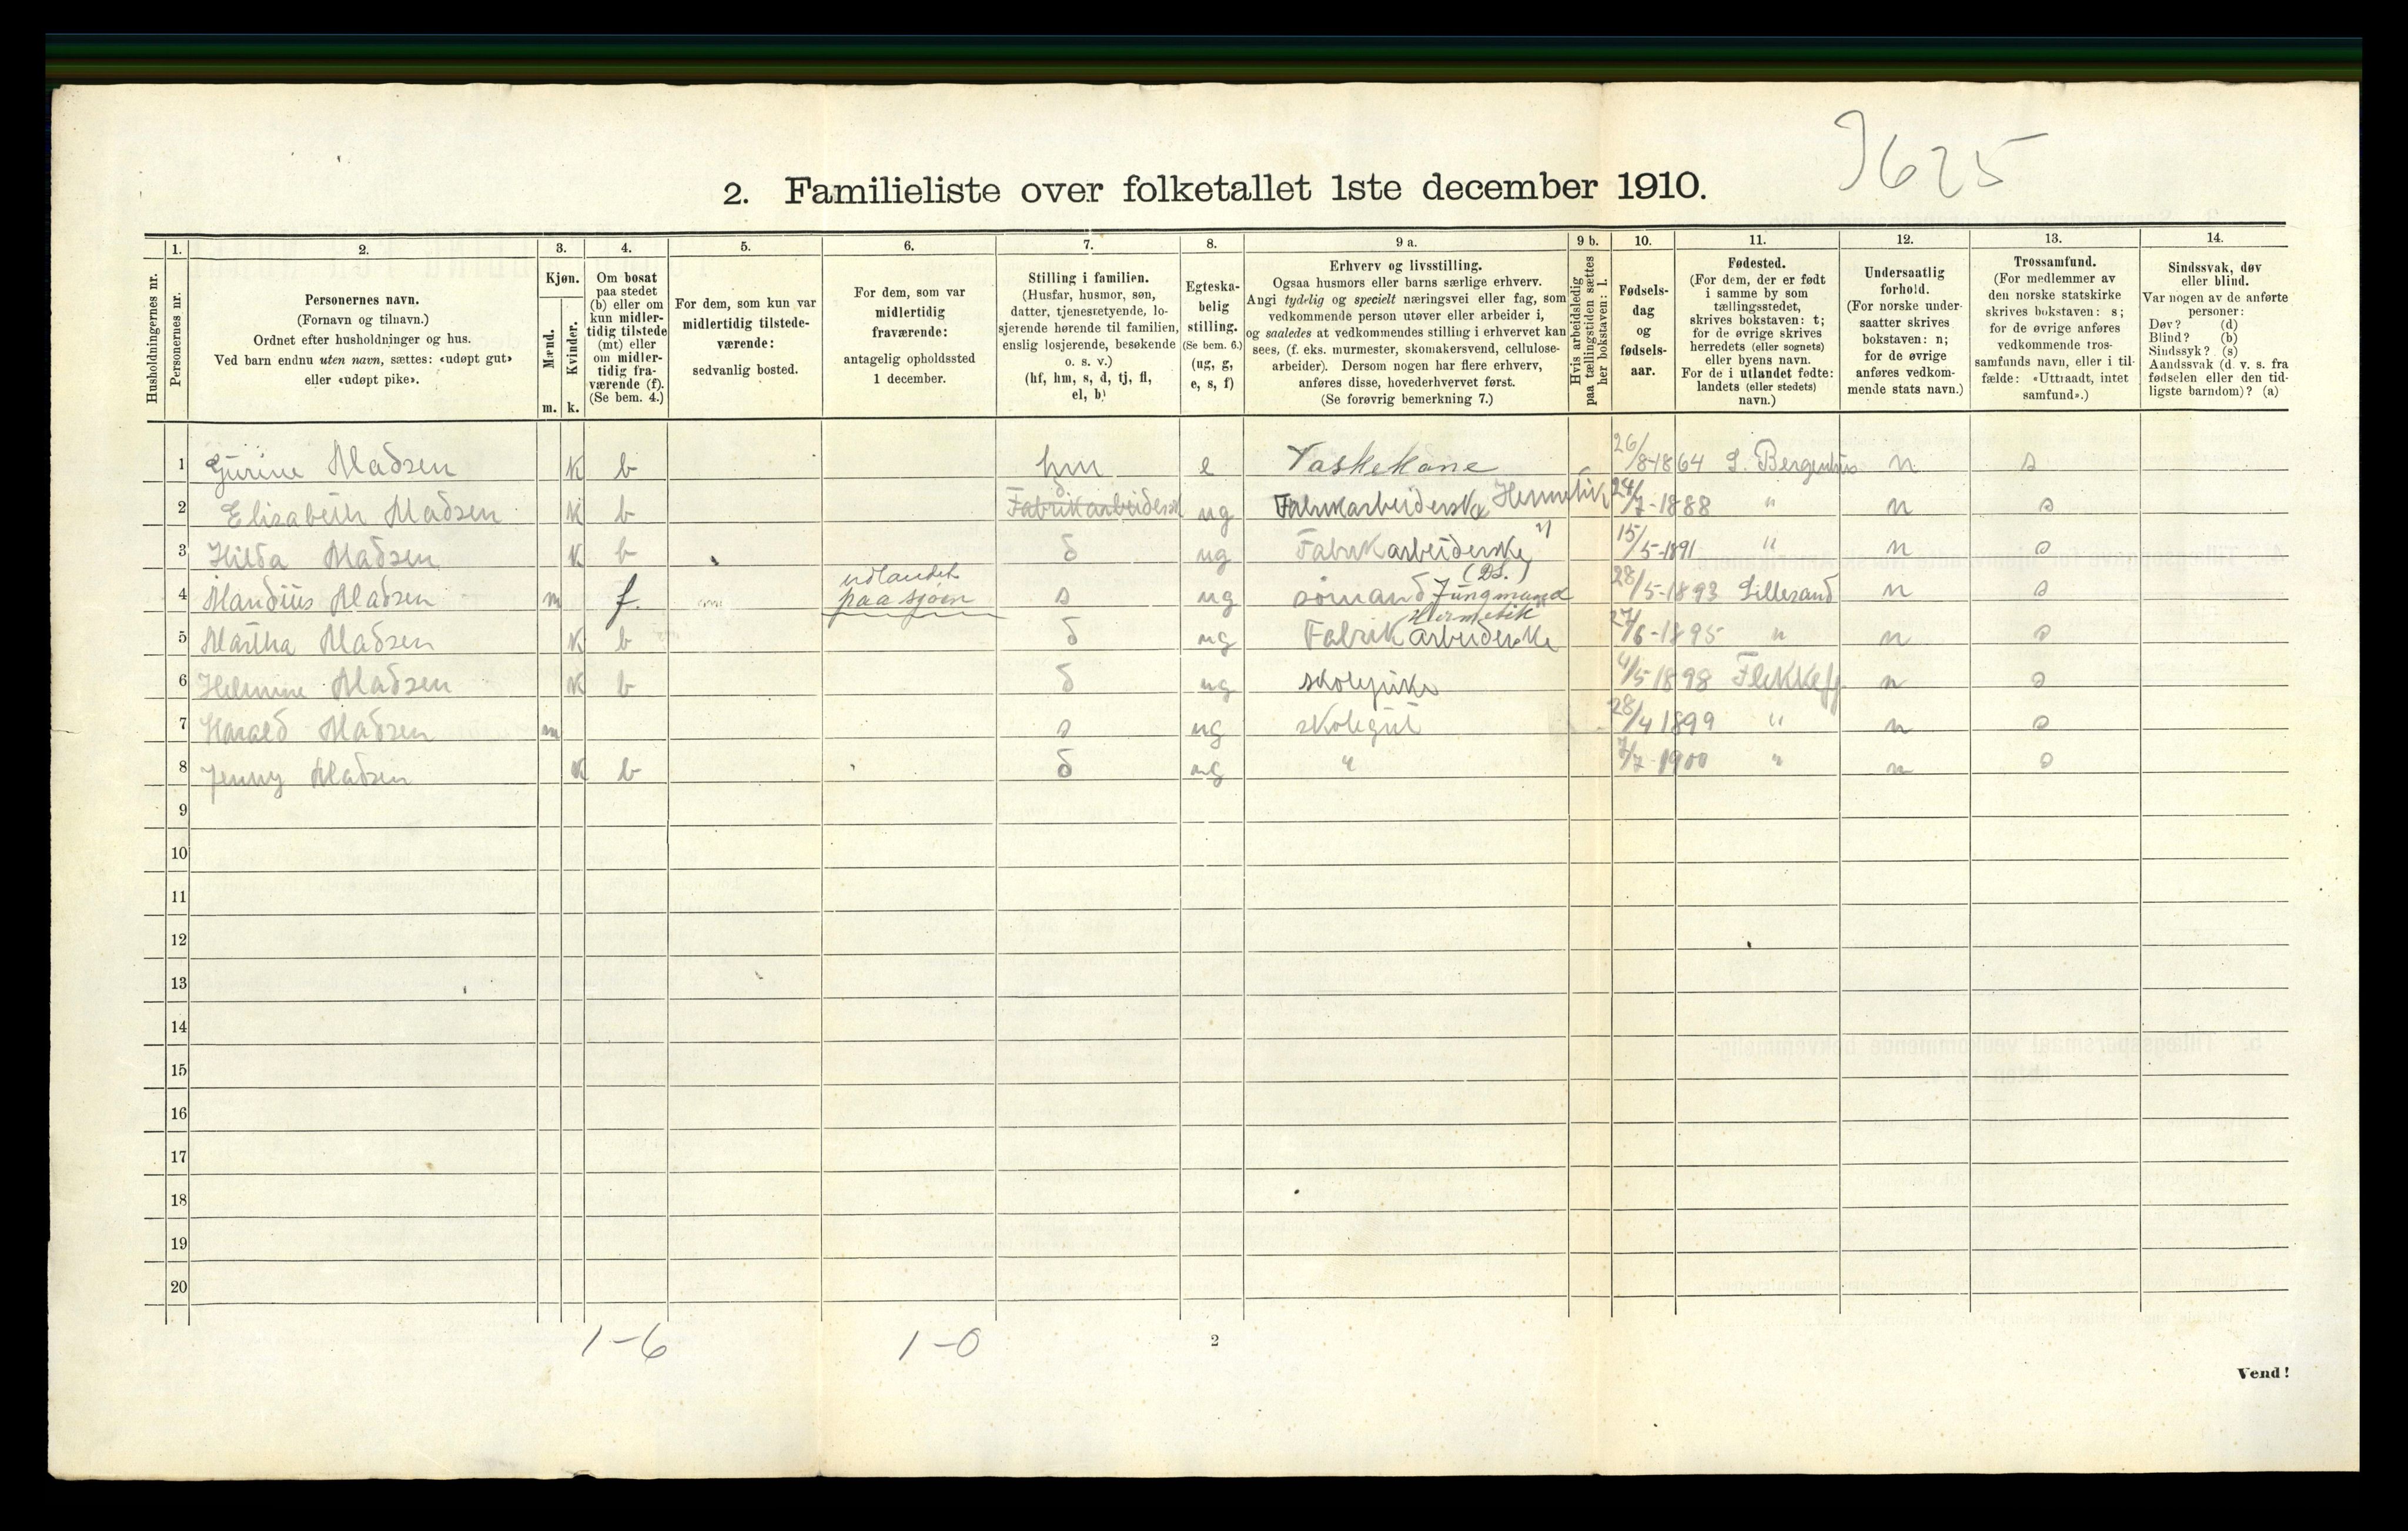 9625
2. Familieliste over folketallet 1ste december 1910.
1. 2. 3. 4. 5. 6. 7. 8. 9 a. 9 b. 10. 11. 12. 13. 14.
Husholdningernes nr.
Personernes nr.
Personernes navn.
(Fornavn og tilnavn.)
Ordnet efter husholdninger og hus.
Ved barn endnu uten navn, sættes: «udøpt gut»
eller «udøpt pike».
Kjøn.
Mænd.
Kvinder.
m. k.
Om bosat
paa stedet
(b) eller om
kun midler-
tidig tilstede
(mt) eller
om midler-
tidig fra-
værende (f).
(Se bem. 4.)
For dem, som kun var
midlertidig tilstede-
værende:
sedvanlig bosted.
For dem, som var
midlertidig
fraværende:
antagelig opholdssted
1 december.
Stilling i familien.
(Husfar, husmor, søn,
datter, tjenestetyende, lo-
sjerende hørende til familien,
enslig losjerende, besøkende
o. s. v.)
(hf, hm, s, d, tj, fl,
el, b)
Egteska-
belig
stilling.
(Se bem. 6.)
(ug, g,
e, s, f)
Erhverv og livsstilling.
Ogsaa husmors eller barns særlige erhverv.
Angi tydelig og specielt næringsvei eller fag, som
vedkommende person utøver eller arbeider i,
og saaledes at vedkommendes stilling i erhvervet kan
sees, (f. eks. murmester, skomakersvend, cellulose-
arbeider). Dersom nogen har flere erhverv,
anføres disse, hovederhvervet først.
(Se forøvrig bemerkning 7.)
Hvis arbeidsledig
paa tællingstiden sættes
her bokstaven: l.
Fødsels-
dag
og
fødsels-
aar.
Fødested.
(For dem, der er født
i samme by som
tællingsstedet,
skrives bokstaven: t;
for de øvrige skrives
herredets (eller sognets)
eller byens navn.
For de i utlandet fødte:
landets (eller stedets)
navn.)
Undersaatlig
forhold.
(For norske under-
saatter skrives
bokstaven: n;
for de øvrige
anføres vedkom-
mende stats navn.)
Trossamfund.
(For medlemmer av
den norske statskirke
skrives bokstaven: s;
for de øvrige anføres
vedkommende tros-
samfunds navn, eller i til-
fælde: «Uttraadt, intet
samfund».)
Sindssvak, døv
eller blind.
Var nogen av de anførte
personer:
Døv? (d)
Blind? (b)
Sindssyk? (s)
Aandssvak (d. v. s. fra
fødselen eller den tid-
ligste barndom)? (a)
1 Gurine Madsen k b hm e Vaskekone 26/8-1864 S. Bergenhus n s
2 Elisabeth Madsen k b Fabrikarbeidersk d ug Fabrikarbeiderske 24/7-1888 " n s
3 Hilda Madsen k b d ug Fabrikarbeiderske " 15/5-1891 " n s
4 Madsen m f. udlandet paa sjøen s ug sømand Jungmand (DS.) 28/5-1893 Lillesand n s
5 Martha Madsen k b d ug Fabrikarbeiderske Hermetik 27/6-1895 " n s
6 Madsen k b d ug skolepike 4/5 1898 Flekkefj n s
7 Harald Madsen m s ug skolegut 28/4 1899 " n s
8 Jenny Madsen k b d ug " 7/7-1900 " n s
9
10
11
12
13
14
15
16
17
18
19
20
1-6 1-0
2
Vend!